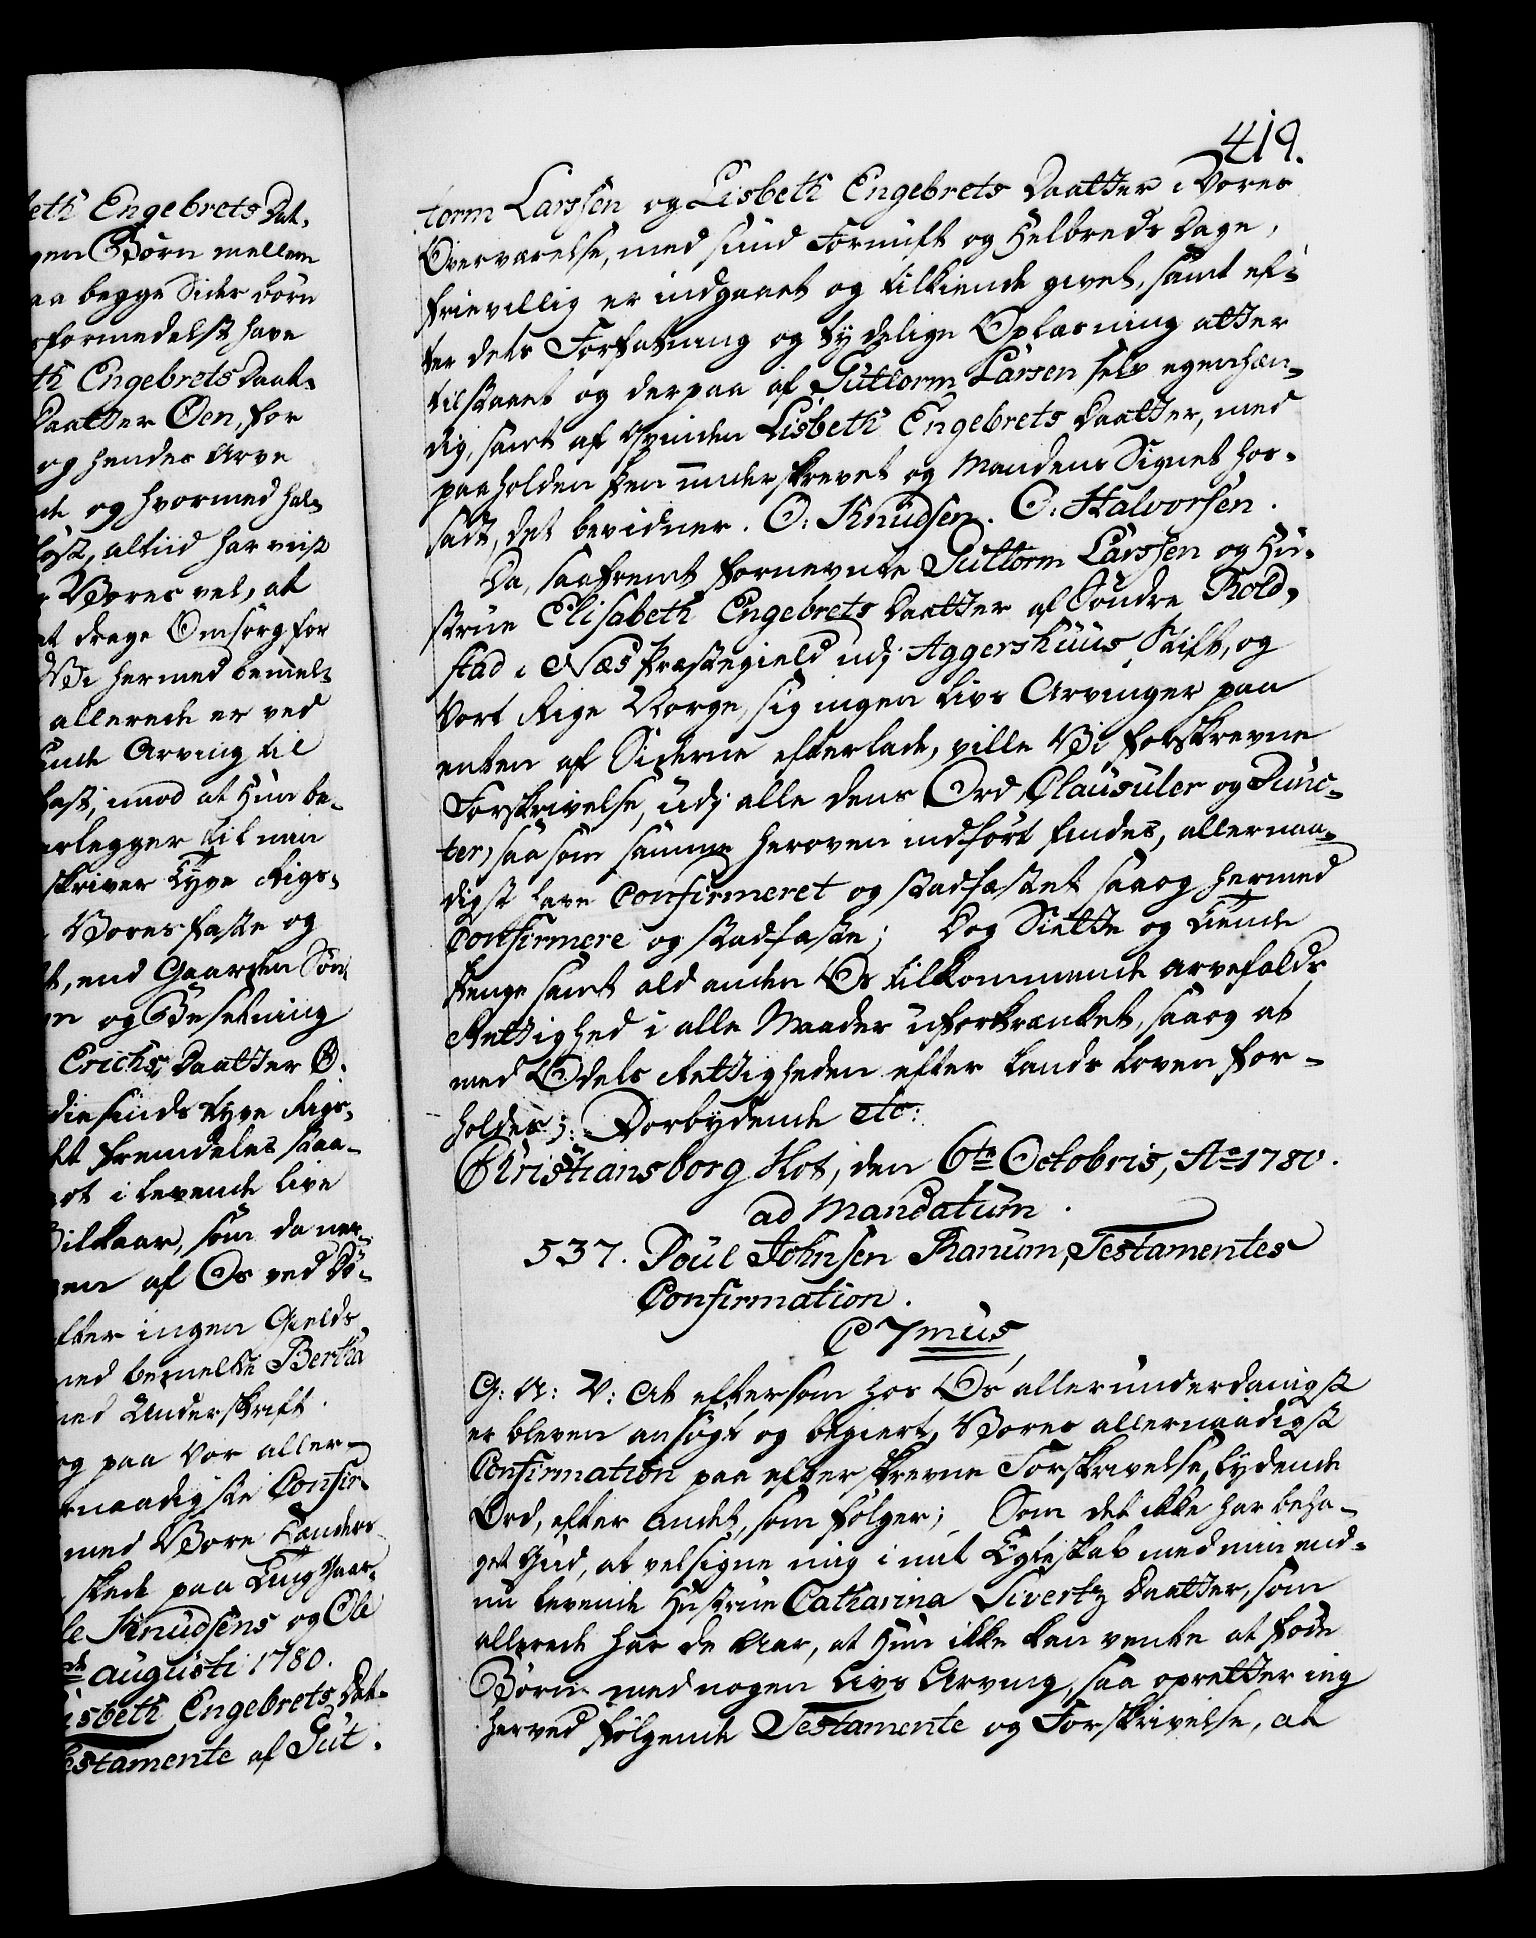 eth Engebrets Dat¬
gen Børn mellem
aa begge Sider børn
formedelst have
th Engebrets Daat¬
Daatter Øen, for
og hendes Arve
de og hvormed hal¬
altiid har viist
Vores vel, at
at drage Omsorg for
Vi hermed bemel¬
allerede er ved
Arving til
imod at Hun be¬
erlegger til min
skriver Tyve Rigs¬
Vores faste og
t, end Gaarden Søn¬
og Besetning
Erichs Daatter Ø.
Tyve Rigs¬
fremdeles staa¬
i levende Live
Vilkaar, som da ner¬
en af Os ved Dø¬
efter ingen Gields
med bemelte Bertha
med Underskrift.
og paa vor aller¬
rnaadigste Confir¬
med Vore Hænders
skede paa Ting Gaar¬
le Knudsens og Ole
augusti 1780.
isbeth Engebrets Dat¬
estamente af Gut¬
419.
torm Larssen og Lisbeth Engebrets Daatter i Vores
Overværelse, med sund Fornuft og Helbreds Dage,
frievillig er indgaaet og tilkiende givet, samt ef¬
ter dets Forfatning og tydelige Oplæsning atter
tilstaaet og derpaa af Guttorm Larsen selv egenhæn¬
dig, samt af Qvinden Lisbeth Engebrets Daatter, med
paaholden Pen underskrevet og Mandens Signet hos¬
sadt, det bevidner. O. Knudsen. O. Halvorsen.
Da, saafremt fornevnte Guttorm Larssen og Hu¬
strue Elisabeth Engebrets Daatter af Søndre Rold¬
stad i Næs Præstegield udj Aggershuus Stift, og
Vort Rige Norge, sig ingen Livs Arvinger paa
enten af Siderne efterlade, ville Vi forskrevne
Forskrivelse, udj alle dens Ord, Clausuler og Punc¬
ter, saasom samme heroven indført findes, allernaa¬
digst have Confirmeret og stadfæstet saa og hermed
Confirmere og stadfæste; Dog Siette og Tiende
Penge samt ald anden Os tilkommende arvefalds
Rettighed i alle Maader uforkrænket, saa og at
med Odels Rettigheden efter Lands Loven for¬
holdes; Forbydende etc:
Christiansborg Slot, den 6te Octobris, Ao 1780.
ad Mandatum.
537. Poul Johnsen Ranum, Testamentes
Confirmation.
C 7mus
G: A: V: At eftersom hos Os allerunderdanigst
er bleven ansøgt og begiert, Vores allernaadigst
Confirmation paa efterskrevne Forskrivelse, lydende
Ord, efter andet, som følger; Som det ikke har beha¬
get Gud, at velsigne mig i mit Egteskab med min end¬
nu levende Hustrue Catharina Sivertz Daatter, som
allerede har de Aar, at Hun ikke kan vente at føde
Børn med nogen Livs Arving, saa opretter ieg
herved følgende Testamente og Forskrivelse, at